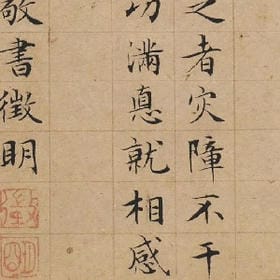 之者灾障不干
功滿悳就相感
敬書徵明